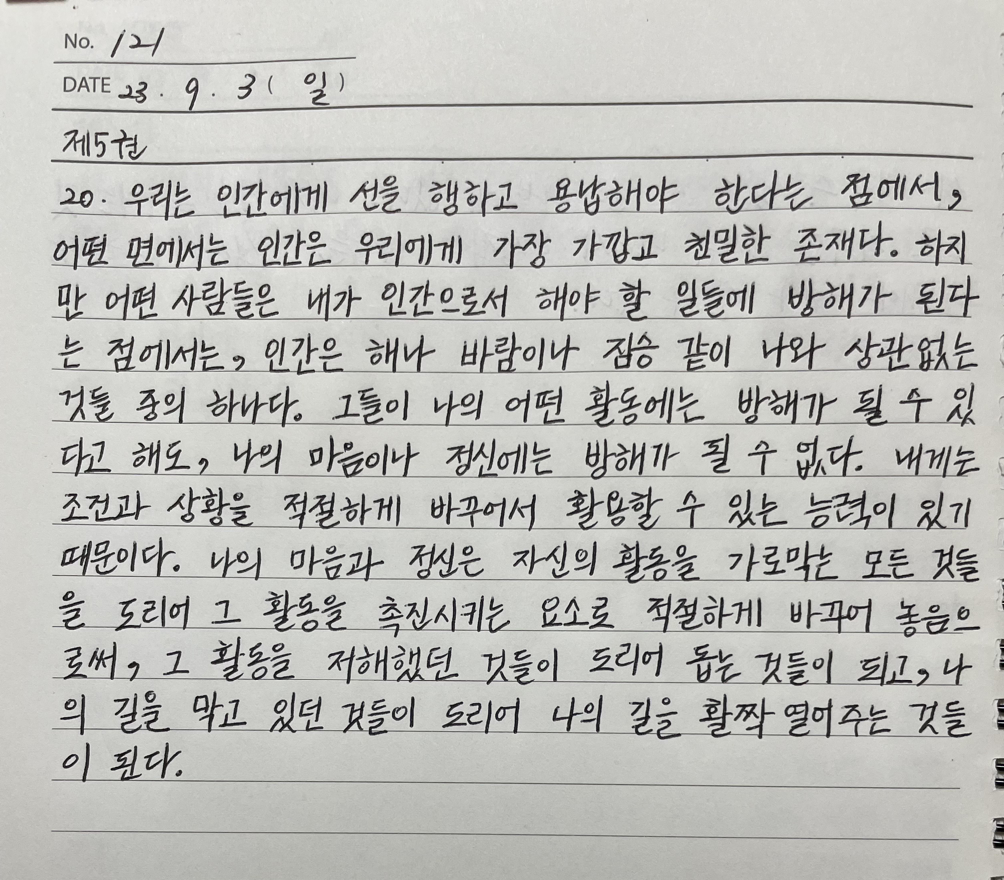 No. 121
DATE 23. 9. 3 ( 일 )
제5권
20. 우리는 인간에게 선을 행하고 용납해야 한다는 점에서,
어떤 면에서는 인간은 우리에게 가장 가깝고 친밀한 존재다. 하지
만 어떤 사람들은 내가 인간으로서 해야 할 일들에 방해가 된다
는 점에서는, 인간은 해나 바람이나 짐승 같이 나와 상관없는
것들 중의 하나다. 그들이 나의 어떤 활동에는 방해가 될 수 있
다고 해도, 나의 마음이나 정신에는 방해가 될 수 없다. 내게는
조건과 상황을 적절하게 바꾸어서 활용할 수 있는 능력이 있기
때문이다. 나의 마음과 정신은 자신의 활동을 가로막는 모든 것들
을 도리어 그 활동을 촉진시키는 요소로 적절하게 바꾸어 놓음으
로써, 그 활동을 저해했던 것들이 도리어 돕는 것들이 되고, 나
의 길을 막고 있던 것들이 도리어 나의 길을 활짝 열어주는 것들
이 된다.